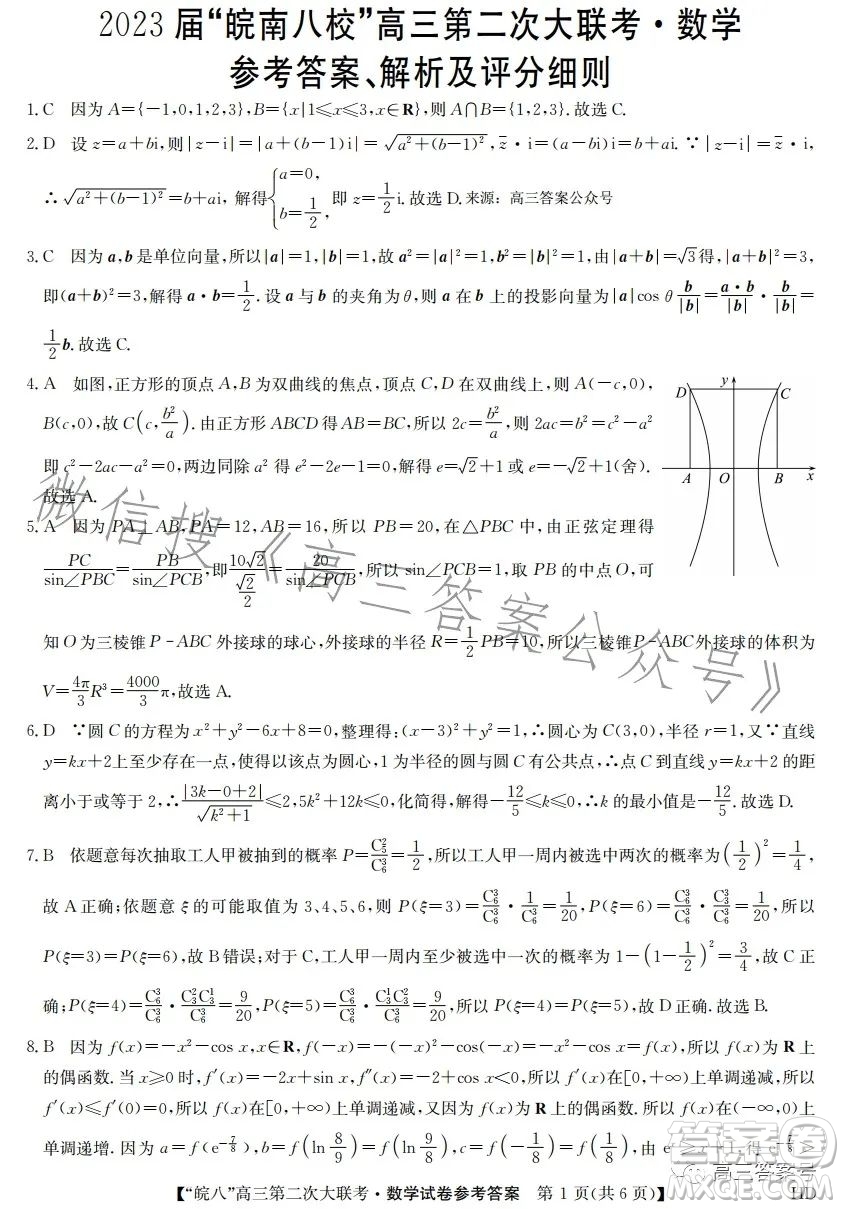 2023 届“皖南八校”高三第二次大联考·数学
参考答案、解析及评分细则
1. C 因为 A={-1,0,1,2,3},B={x|1≤x≤3,x∈R},则 A∩B={1,2,3}.故选 C.
2. D 设 z=a+bi,则|z-i|=|a+(b-1)i|=√(a²+(b-1)²),z̄·i=(a-bi)i=b+ai. ∵|z-i|=z̄·i,
∴√(a²+(b-1)²)=b+ai, 解得{a=0, b=1/2, 即 z=1/2 i.故选 D.来源:高三答案公众号
3. C 因为 a,b 是单位向量,所以|a|=1,|b|=1,故 a²=|a|²=1,b²=|b|²=1,由|a+b|=√3得,|a+b|²=3,
即(a+b)²=3,解得 a·b=1/2.设 a 与 b 的夹角为θ,则 a 在 b 上的投影向量为|a|cos θ b/|b|=a·b/|b|·b/|b|=
1/2 b.故选 C.
4. A 如图,正方形的顶点 A,B 为双曲线的焦点,顶点 C,D 在双曲线上,则 A(-c,0),
B(c,0),故 C(c,b²/a).由正方形 ABCD 得 AB=BC,所以 2c=b²/a,则 2ac=b²=c²-a²
即 c²-2ac-a²=0,两边同除 a² 得 e²-2e-1=0,解得 e=√2+1 或 e=-√2+1(舍).
故选 A.
y
D C
A O B x
5. A 因为 PA⊥AB,PA=12,AB=16,所以 PB=20,在△PBC 中,由正弦定理得
PC/sin∠PBC=PB/sin∠PCB,即10√2/(√2/2)=20/sin∠PCB,所以 sin∠PCB=1,取 PB 的中点 O,可
知 O 为三棱锥 P-ABC 外接球的球心,外接球的半径 R=1/2 PB=10,所以三棱锥P-ABC外接球的体积为
V=4π/3 R³=4000/3 π,故选 A.
6. D ∵圆 C 的方程为 x²+y²-6x+8=0,整理得:(x-3)²+y²=1,∴圆心为 C(3,0),半径 r=1,又∵直线
y=kx+2上至少存在一点,使得以该点为圆心,1 为半径的圆与圆 C 有公共点,∴点 C 到直线 y=kx+2 的距
离小于或等于 2,∴|3k-0+2|/√(k²+1)≤2,5k²+12k≤0,化简得,解得-12/5≤k≤0,∴k 的最小值是-12/5.故选 D.
7. B 依题意每次抽取工人甲被抽到的概率 P=C₅²/C₆³=1/2,所以工人甲一周内被选中两次的概率为(1/2)²=1/4,
故 A 正确;依题意 ξ 的可能取值为 3、4、5、6,则 P(ξ=3)=C₆³/C₆³·1/C₆³=1/20,P(ξ=6)=C₆³/C₆³·1/C₆³=1/20,所以
P(ξ=3)=P(ξ=6),故 B 错误;对于 C,工人甲一周内至少被选中一次的概率为 1-(1-1/2)²=3/4,故 C 正
确;P(ξ=4)=C₆³/C₆³·C₃²C₃¹/C₆³=9/20,P(ξ=5)=C₆³/C₆³·C₃¹C₃²/C₆³=9/20,所以 P(ξ=4)=P(ξ=5),故 D 正确.故选 B.
8. B 因为 f(x)=-x²-cos x,x∈R,f(-x)=-(-x)²-cos(-x)=-x²-cos x=f(x),所以 f(x)为 R 上
的偶函数.当 x≥0 时,f′(x)=-2x+sin x,f″(x)=-2+cos x<0,所以 f′(x)在[0,+∞)上单调递减,所以
f′(x)≤f′(0)=0,所以 f(x)在[0,+∞)上单调递减,又因为 f(x)为 R 上的偶函数,所以 f(x)在(-∞,0)上
单调递增.因为 a=f(e^(-7/8)),b=f(ln 8/9)=f(ln 9/8),c=f(-1/8)=f(1/8),由 e^x≥x+1,得 e^(-7/8)>
【“皖八”高三第二次大联考·数学试卷参考答案 第 1 页(共 6 页)】 HD
微信搜《高三答案公众号》
高三答案号
答案圈
MXQE.COM